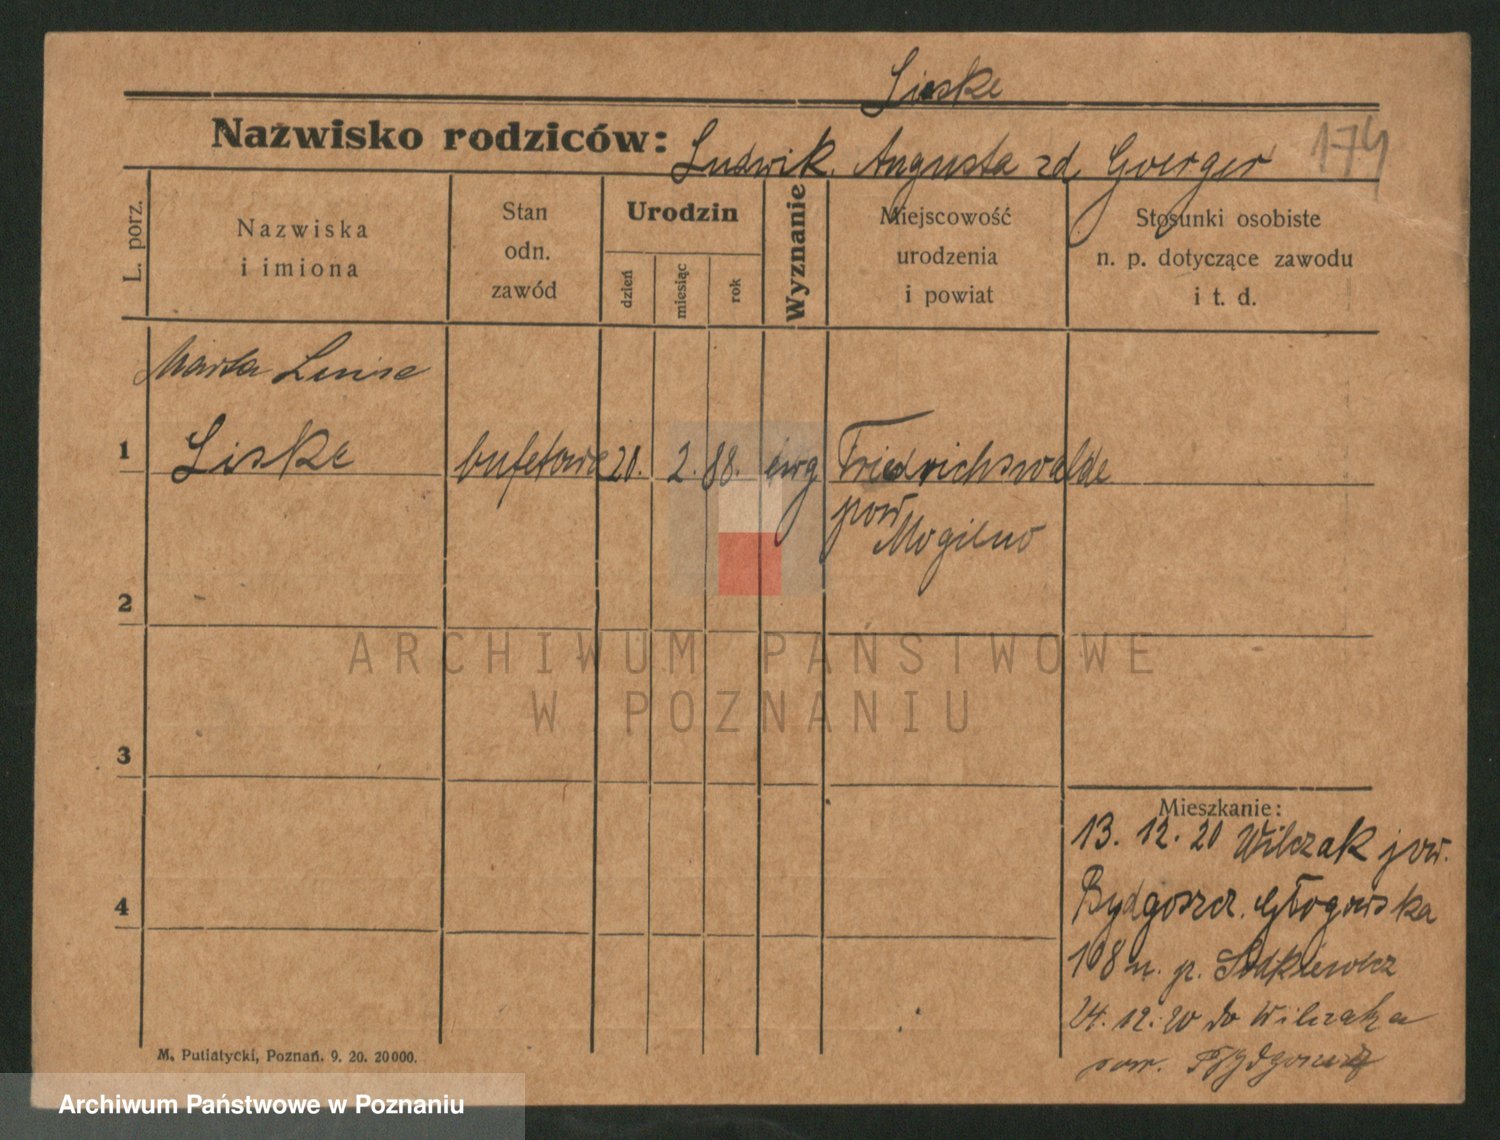 Lieske
Nazwisko rodziców: Ludwik, Augusta zd. Goerger
174
L. porz.
Nazwiska
i imiona
Stan
odn.
zawód
Urodzin
dzień
miesiąc
rok
Wyznanie
Miejscowość
urodzenia
i powiat
Stosunki osobiste
n. p. dotyczące zawodu
i t. d.
Marta Luise
1 Liske bufetowa 20. 2. 88. ewg Friedrichswalde
pow
Mogilno
2
ARCHIWUM PAŃSTWOWE
W POZNANIU
3
4
Mieszkanie:
13. 12. 20 Wilczak pow.
Bydgoszcz. Głogowska
108 n. p.
24. 12. 20 do Wilczaka
pow. Bydgoszcz
M. Putiatycki, Poznań. 9. 20. 20000.
Archiwum Państwowe w Poznaniu